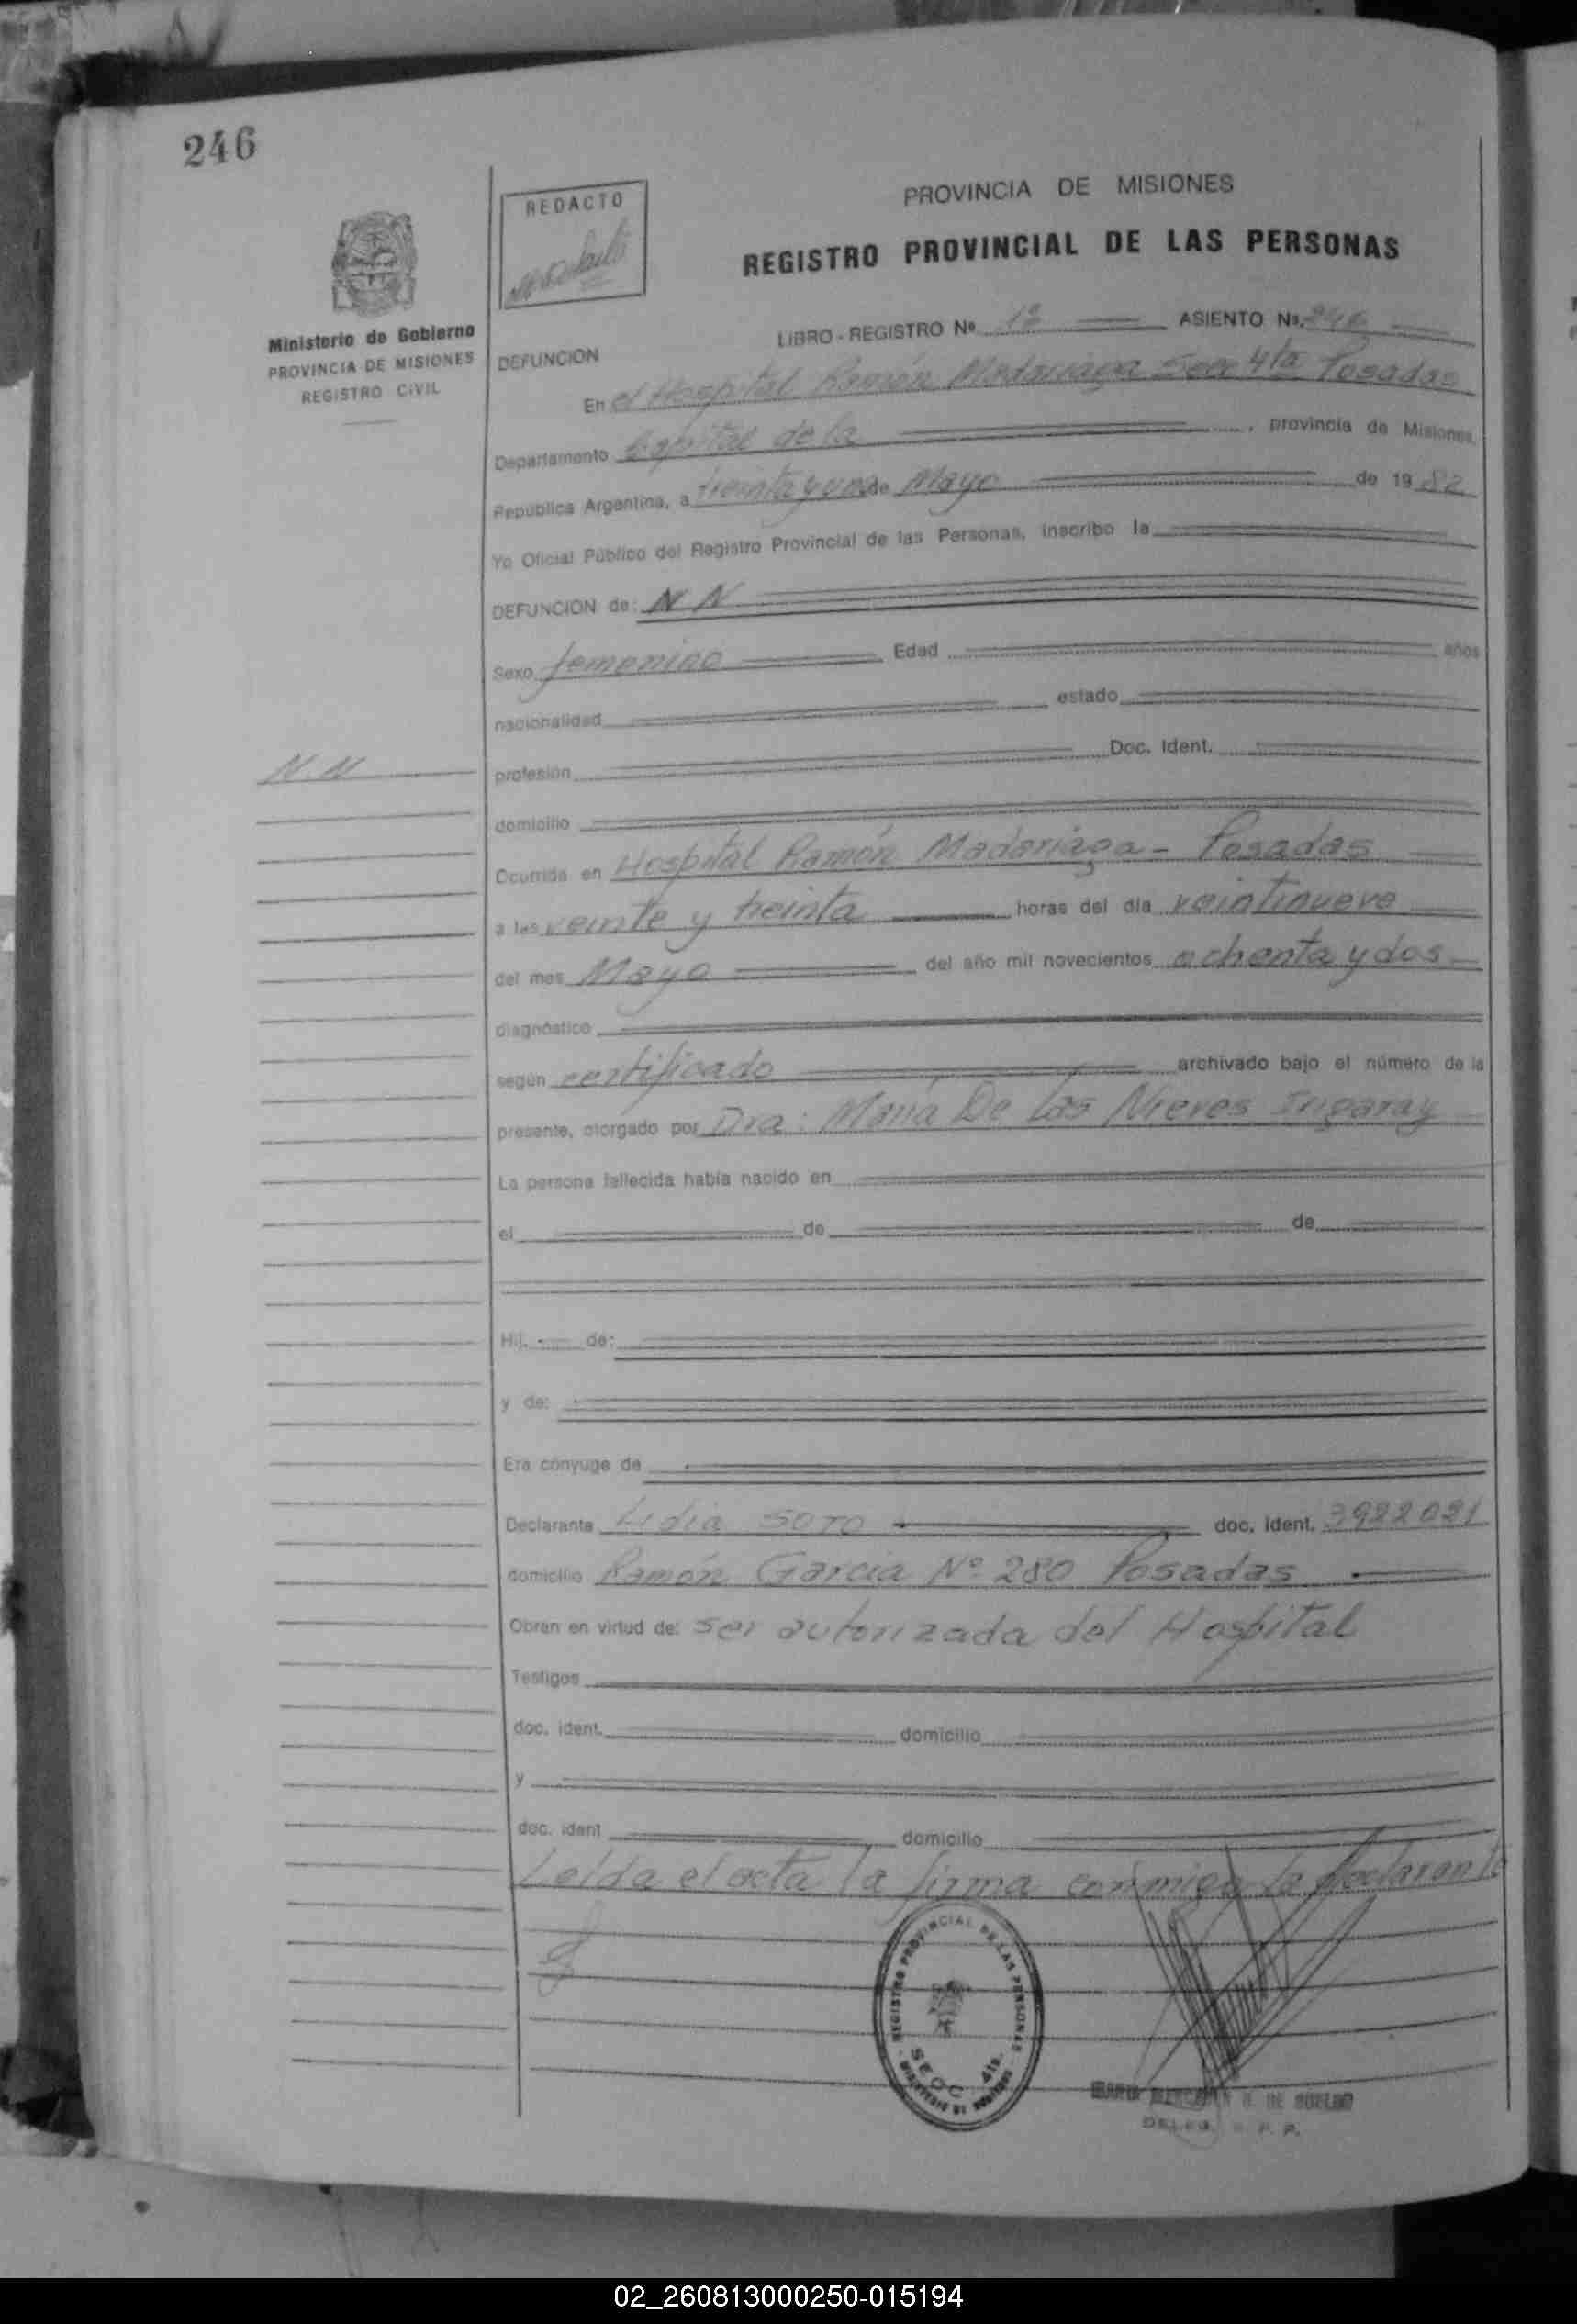 246
REDACTO
PROVINCIA DE MISIONES
REGISTRO PROVINCIAL DE LAS PERSONAS
Ministerio de Gobierno
PROVINCIA DE MISIONES
REGISTRO CIVIL
LIBRO - REGISTRO Nº ASIENTO Nº 246
DEFUNCION
En el Hospital Ramón Madariaga Secc 4ta Posadas
Departamento Capital de la , provincia de Misiones,
República Argentina, a treinta y uno de Mayo de 1982
Yo Oficial Público del Registro Provincial de las Personas, inscribo la
DEFUNCION de: N N
Sexo femenino Edad años
nacionalidad estado
N.N
profesión Doc. Ident.
domicilio
Ocurrida en Hospital Ramón Madariaga - Posadas
a las veinte y treinta horas del día veintinueve
del mes Mayo del año mil novecientos ochenta y dos
diagnóstico
según certificado archivado bajo el número de la
presente, otorgado por Dra: María De Las Nieves Irigaray
La persona fallecida había nacido en
el de de
Hij. de:
y de:
Era cónyuge de
Declarante Lidia Soto doc. ident. 3922021
domicilio Ramón Garcia Nº 280 Posadas
Obran en virtud de: ser autorizada del Hospital
Testigos
doc. ident. domicilio
y
doc. ident domicilio
Leída el acta la firma conmigo la declarante
REGISTRO PROVINCIAL DE LAS PERSONAS
SECC. 4ta.
MINISTERIO DE GOBIERNO
02_260813000250-015194